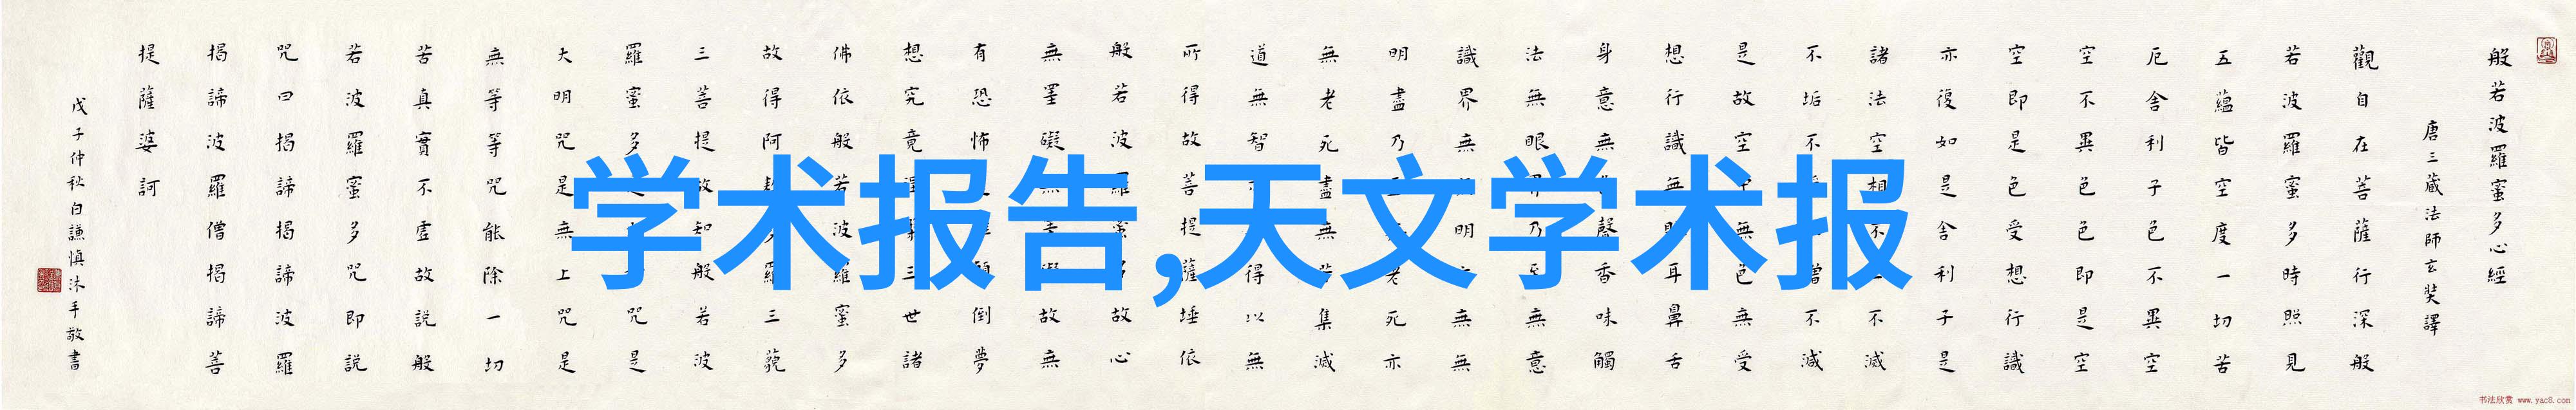 学术报告,天文学术报
般若波羅蜜多心經
唐三蔵法師玄奘譯
觀自在菩薩行深般
若波羅蜜多時照見
五蘊皆空度一切苦
厄舍利子色不異空
空不異色色即是空
空即是色受想行識
亦復如是舍利子是
諸法空相不不滅
不垢不增不減
是故空無色無受
想行識無耳鼻舌
身意無聲香味觸
法無眼界乃至無意
識界無明無無
明盡乃老死亦
無老死盡無苦集滅
道無智得以無
所得故菩提薩埵依
般若波羅蜜多故心
無罣礙無罣礙故無
有恐怖顛倒夢
想究竟三世諸
佛依般若波羅蜜多
故得阿羅三藐
三菩提故知般若波
羅蜜多咒是
大明咒是無上咒是
無等等咒能除一切
苦真實不虛故說般
若波羅蜜多咒即說
咒曰揭諦揭諦波羅
揭諦波羅僧揭諦菩
提薩婆訶
戊子仲秋白謙慎沐手敬書
书法欣赏 www.yac8.com